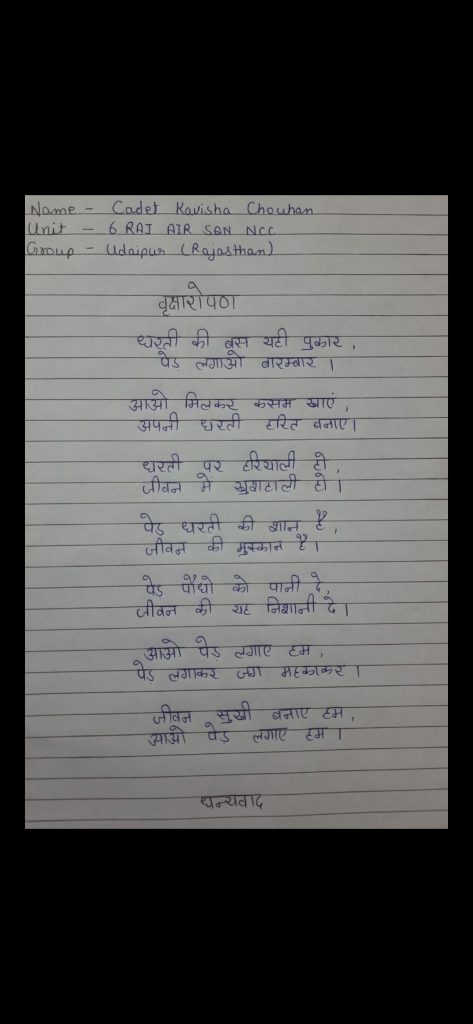 Name - Cadet Kavisha Chouhan
Unit - 6 RAJ AIR SQN NCC
Group - Udaipur (Rajasthan)
वृक्षारोपण
धरती की बस यही पुकार,
पेड़ लगाओ बारम्बार ।
आओ मिलकर कसम खाएं,
अपनी धरती हरित बनाए।
धरती पर हरियाली हो,
जीवन में खुशहाली हो ।
पेड़ धरती की शान है,
जीवन की मुस्कान है।
पेड़ पौधो को पानी दे,
जीवन की यह निशानी दे ।
आओ पेड़ लगाए हम,
पेड़ लगाकर जग महकाकर ।
जीवन सुखी बनाए हम,
आओ पेड़ लगाए हम ।
धन्यवाद